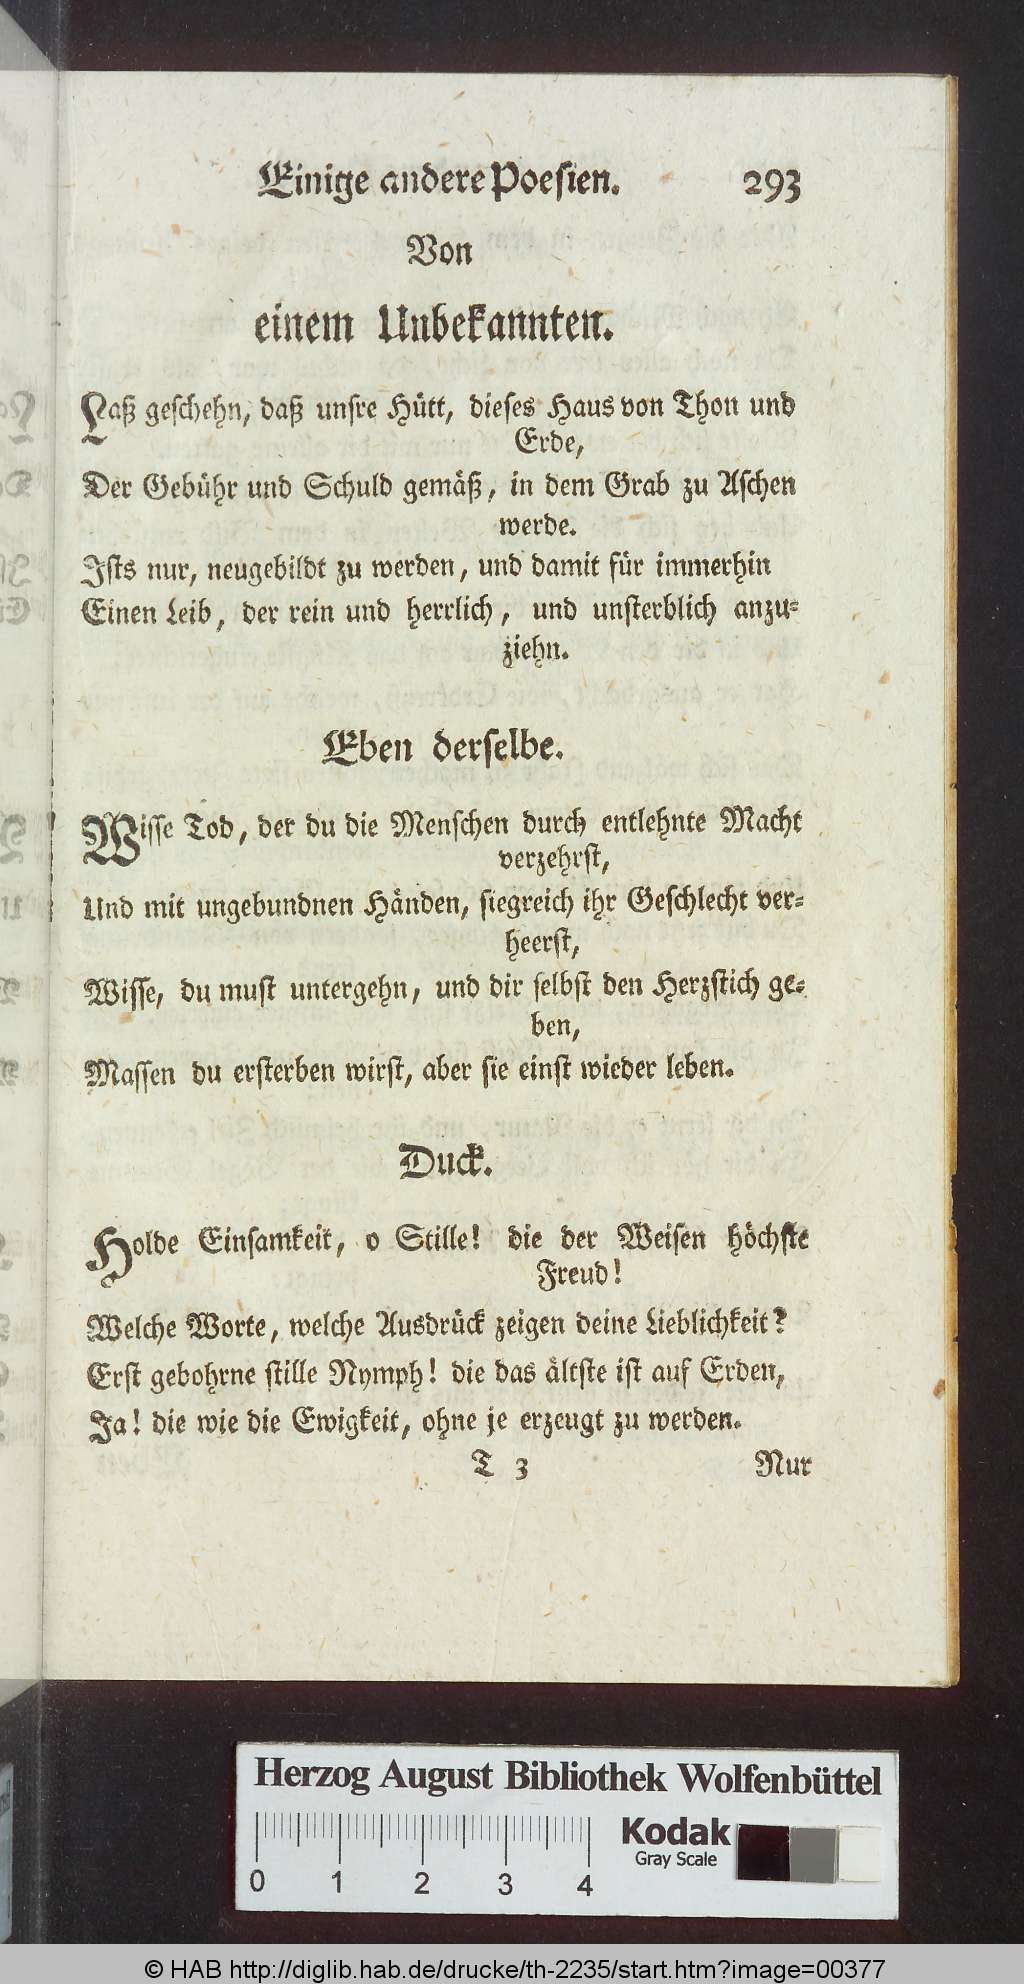 Einige andere Poesien. 293
Von
einem Unbekannten.
Laß geschehn, daß unsre Hütt, dieses Haus von Thon und
Erde,
Der Gebühr und Schuld gemäß, in dem Grab zu Aschen
werde.
Ists nur, neugebildt zu werden, und damit für immerhin
Einen Leib, der rein und herrlich, und unsterblich anzu-
ziehn.
Eben derselbe.
Wisse Tod, der du die Menschen durch entlehnte Macht
verzehrst,
Und mit ungebundnen Händen, siegreich ihr Geschlecht ver-
heerst,
Wisse, du must untergehn, und dir selbst den Herzstich ge-
ben,
Massen du ersterben wirst, aber sie einst wieder leben.
Duck.
Holde Einsamkeit, o Stille! die der Weisen höchste
Freud!
Welche Worte, welche Ausdrück zeigen deine Lieblichkeit?
Erst gebohrne stille Nymph! die das ältste ist auf Erden,
Ja! die wie die Ewigkeit, ohne je erzeugt zu werden.
T 3 Nur
Herzog August Bibliothek Wolfenbüttel
Kodak
Gray Scale
0 1 2 3 4
© HAB http://diglib.hab.de/drucke/th-2235/start.htm?image=00377